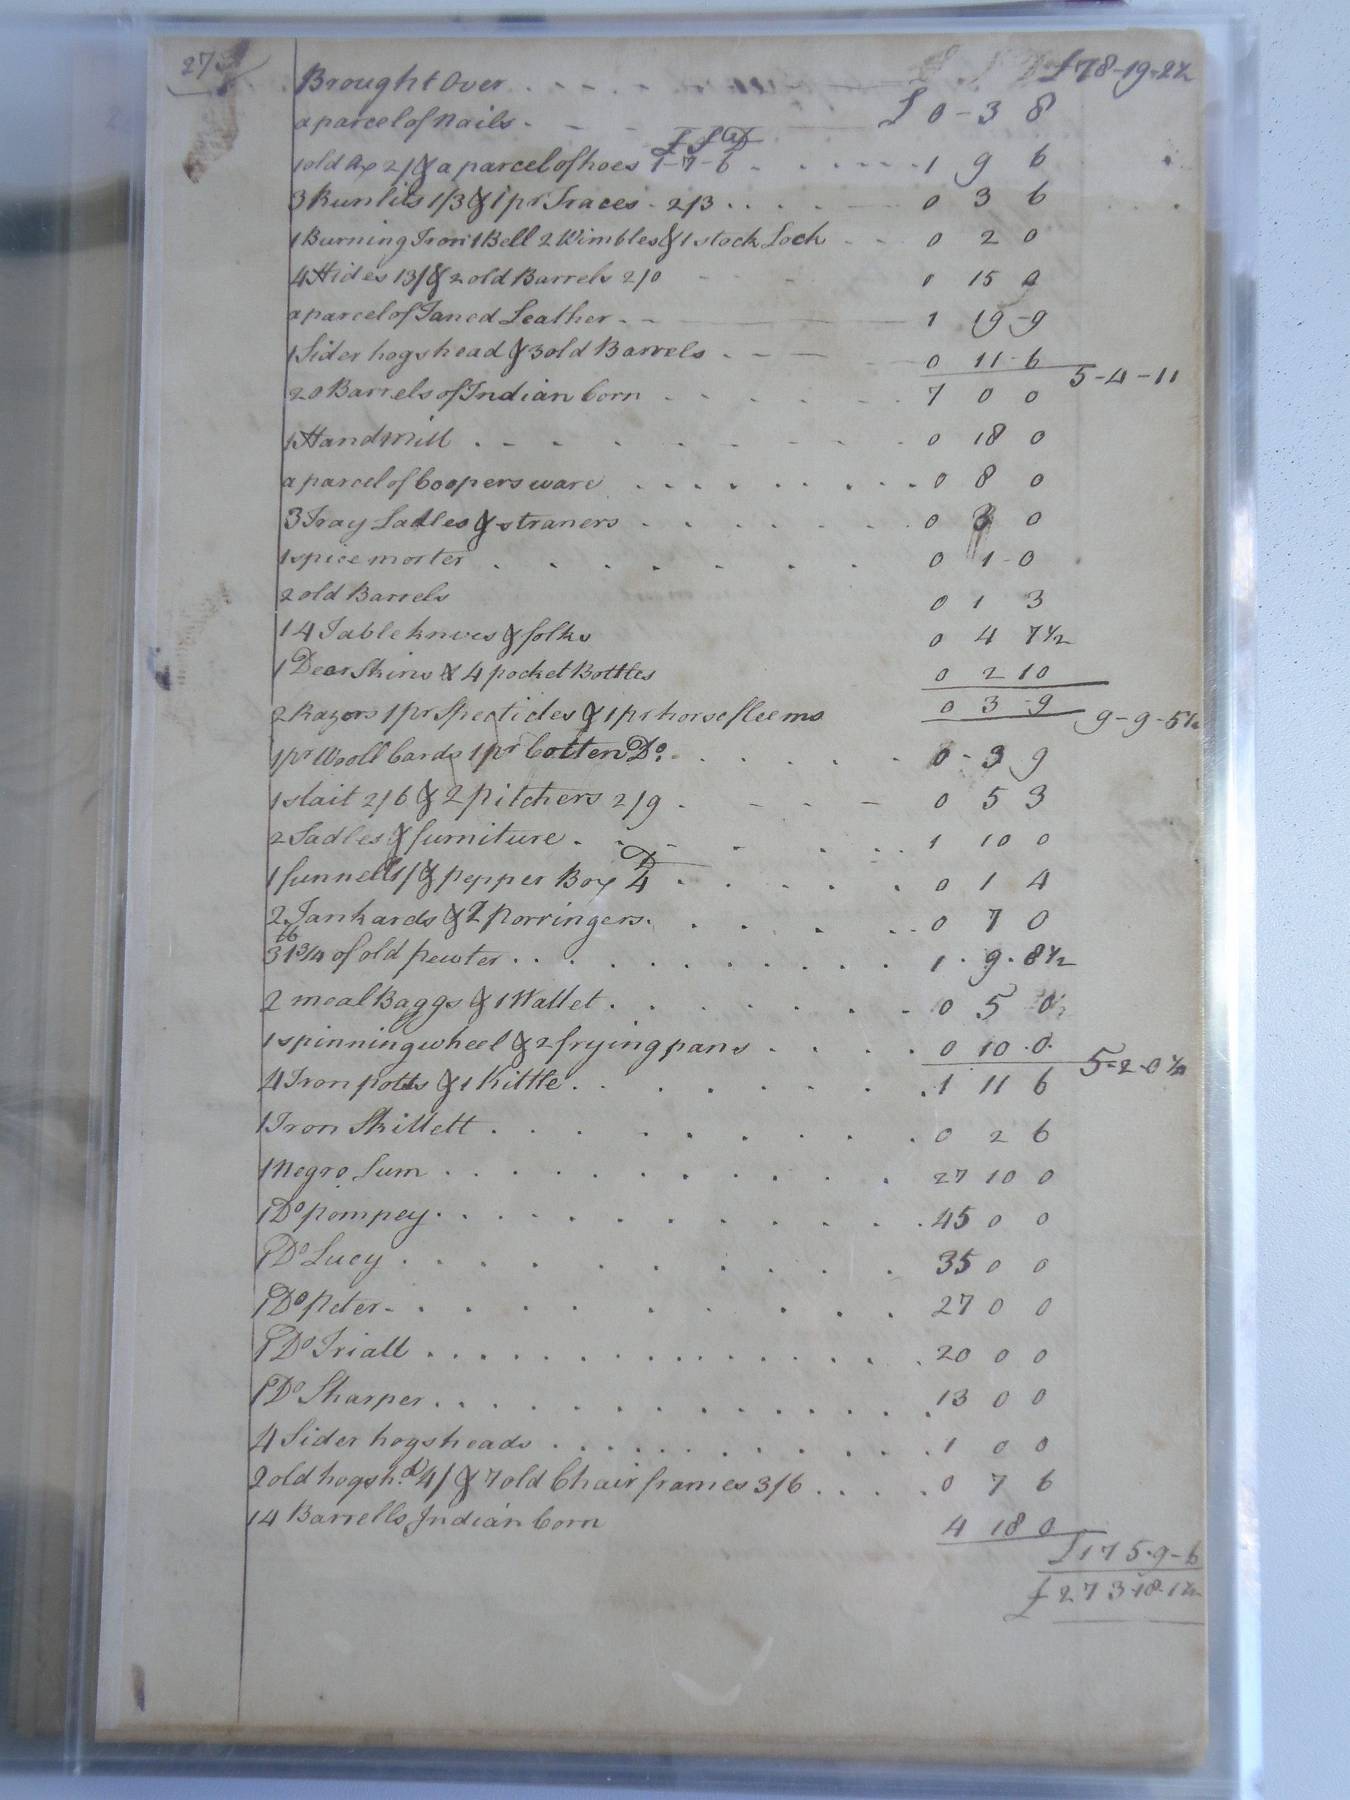 273
Brought Over £78-19-2½
a parcel of nails £ 0-3 8
£ S D
1 old Ax 2/ & a parcel of hoes 1-7-6 1 9 6
3 Runlits 1/3 & 1 pr Traces - 2/3 0 3 6
1 Burning Iron 1 Bell 2 Wimbles & 1 stock Lock 0 2 0
4 Hides 13/ & 2 old Barrels 2/0 0 15 0
a parcel of Taned Leather 1 19-9
1 Sider hogshead & 3 old Barrels 0 11-6
5-4-11
20 Barrels of Indian Corn 7 0 0
1 Hand Mill 0 18 0
a parcel of Coopers ware 0 8 0
3 Tray Ladles & straners 0 0
1 spice morter 0 1-0
2 old Barrels 0 1 3
14 Table knives & folks 0 4 7½
1 Dear Skins & 4 pocket Bottles 0 2 10
2 Razors 1 pr Specticles & 1 pr horse fleems 0 3-9
9-9-5½
1 pr Wooll Cards 1 pr Cotten Do. 0-3 9
1 slait 2/6 & 2 Pitchers 2/9 0 5 3
2 Sadles & furniture 1 10 0
1 funnell 1/ & pepper Box 4 D 0 1 4
2 Tankards & 2 porringers 0 7 0
31¾ lb of old pewter 1 . 9 . 8½
2 meal Baggs & 1 Wallet 0 5 0
1 spinning wheel & 2 frying pans 0 10.0.
5-2-0½
4 Iron potts & 1 Kittle 1 11 6
1 Iron Skillett 0 2 6
1 Negro Sum 27 10 0
1 Do pompey 45 0 0
1 Do Lucy 35 0 0
1 Do Peter 27 0 0
1 Do Triall 20 0 0
1 Do Sharper 13 0 0
4 Sider hogsheads 1 0 0
2 old hogshd. 4/ & 7 old Chair frames 3/6 0 7 6
14 Barrells Indian Corn 4 18 0
£175.9-6
£273-18-1½